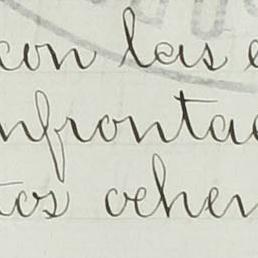 con las e
nfrontad
tos ochen